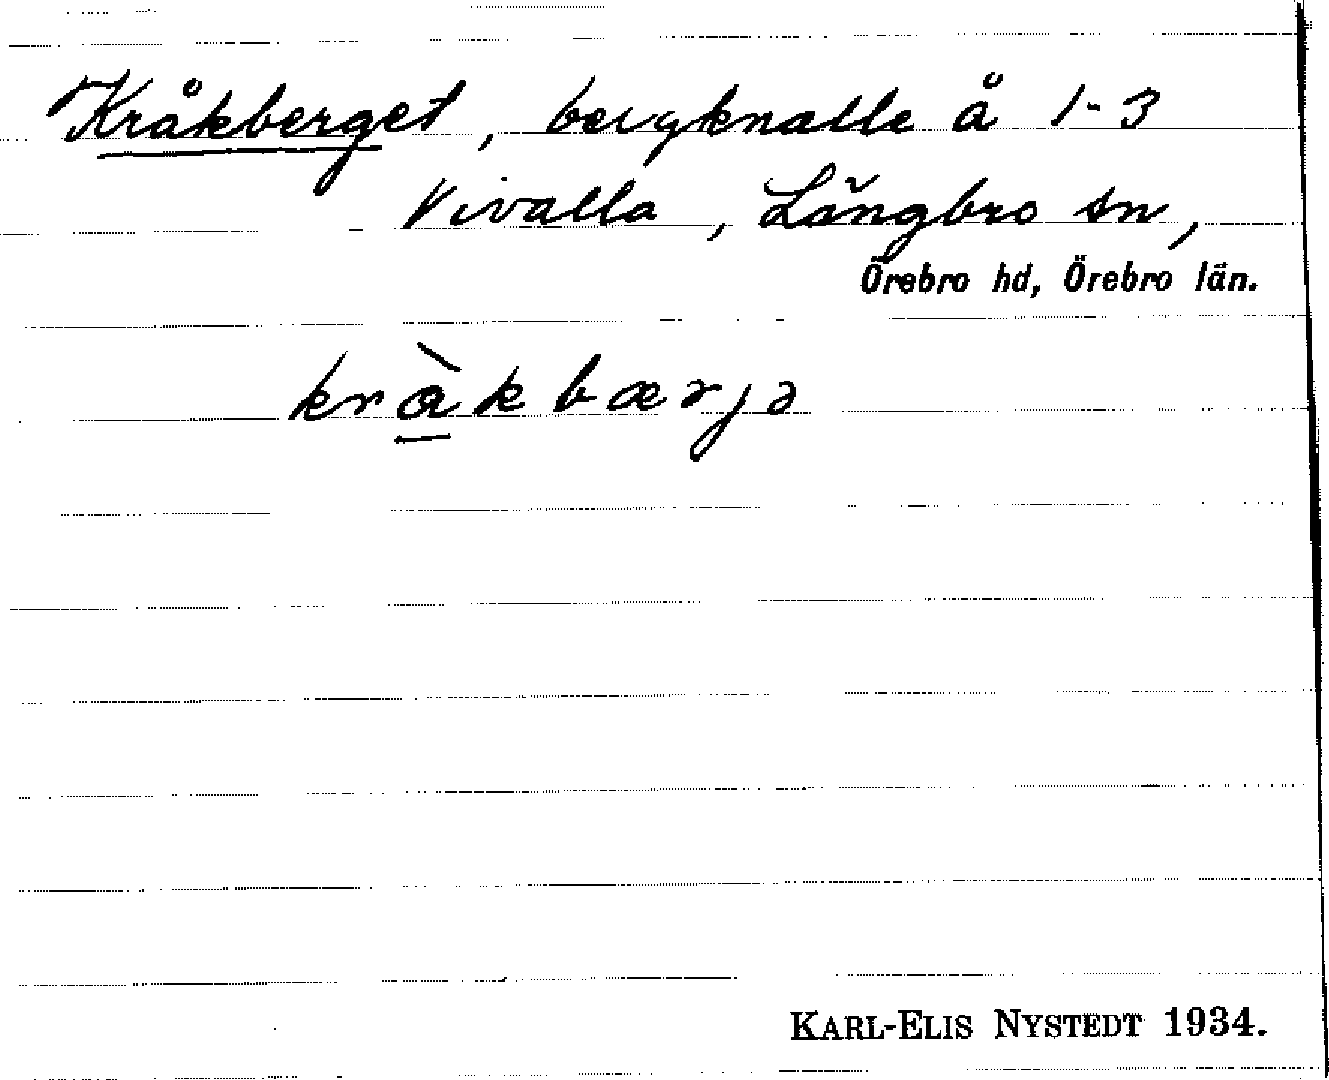 Kråkberget, bergknalle å 1-3
Vivalla, Längbro sn,
Örebro hd, Örebro län.
krὰkbærjə
KARL-ELIS NYSTEDT 1934.